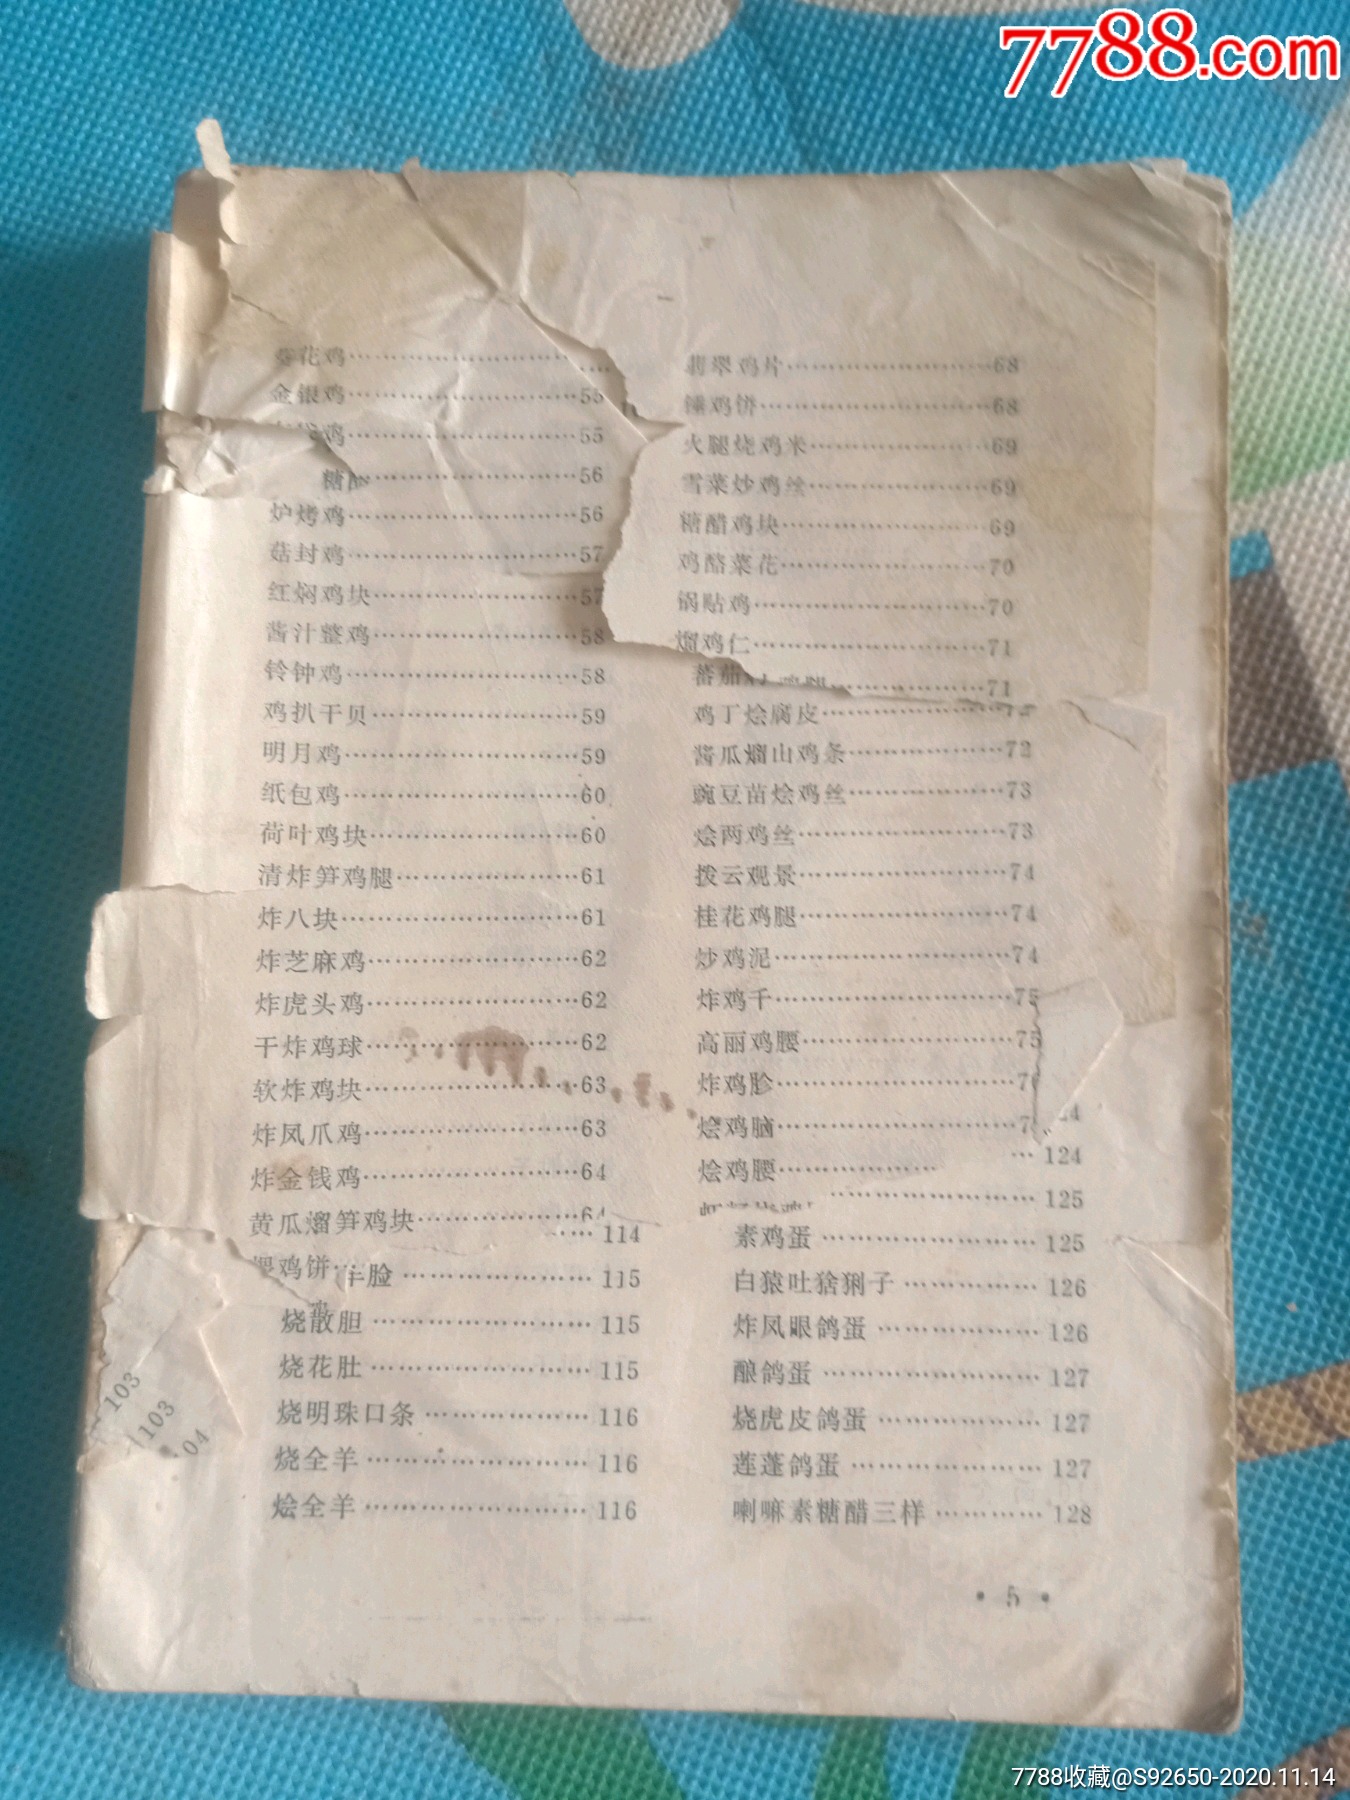 7788.com
花鸡……………………
金银鸡……………………55
鸡……………………55
糖……………………56
炉烤鸡……………………56
菇封鸡……………………57
红焖鸡块……………………57
酱汁整鸡……………………58
铃钟鸡……………………58
鸡扒干贝……………………59
明月鸡……………………59
纸包鸡……………………60
荷叶鸡块……………………60
清炸笋鸡腿……………………61
炸八块……………………61
炸芝麻鸡……………………62
炸虎头鸡……………………62
干炸鸡球……………………62
软炸鸡块……………………63
炸凤爪鸡……………………63
炸金钱鸡……………………64
黄瓜溜笋鸡块……………………64
……114
鸡饼……
羊脸……………………115
烧散胆……………………115
烧花肚……………………115
烧明珠口条………………116
烧全羊……………………116
烩全羊……………………116
103
103
04
翡翠鸡片……………………68
锤鸡饼……………………68
火腿烧鸡米……………………69
雪菜炒鸡丝……………………69
糖醋鸡块……………………69
鸡酪菜花……………………70
锅贴鸡……………………70
溜鸡仁……………………71
蕃茄
鸡腿……………………71
鸡丁烩腐皮……………………72
酱瓜熘山鸡条………………72
豌豆苗烩鸡丝………………73
烩两鸡丝……………………73
拨云观景……………………74
桂花鸡腿……………………74
炒鸡泥……………………74
炸鸡千……………………75
高丽鸡腰……………………75
炸鸡胗……………………7
烩鸡脑……………………7
24
烩鸡腰………………
…124
……………………125
素鸡蛋……………………125
白猿吐猞猁子……………126
炸凤眼鸽蛋………………126
酿鸽蛋……………………127
烧虎皮鸽蛋………………127
莲蓬鸽蛋…………………127
喇嘛素糖醋三样…………128
• 5 •
7788收藏@S92650-2020.11.14